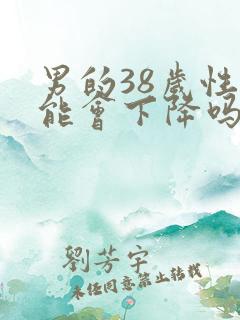 男的38歲性
能會下降嗎
劉芳宇
未经同意禁止转载